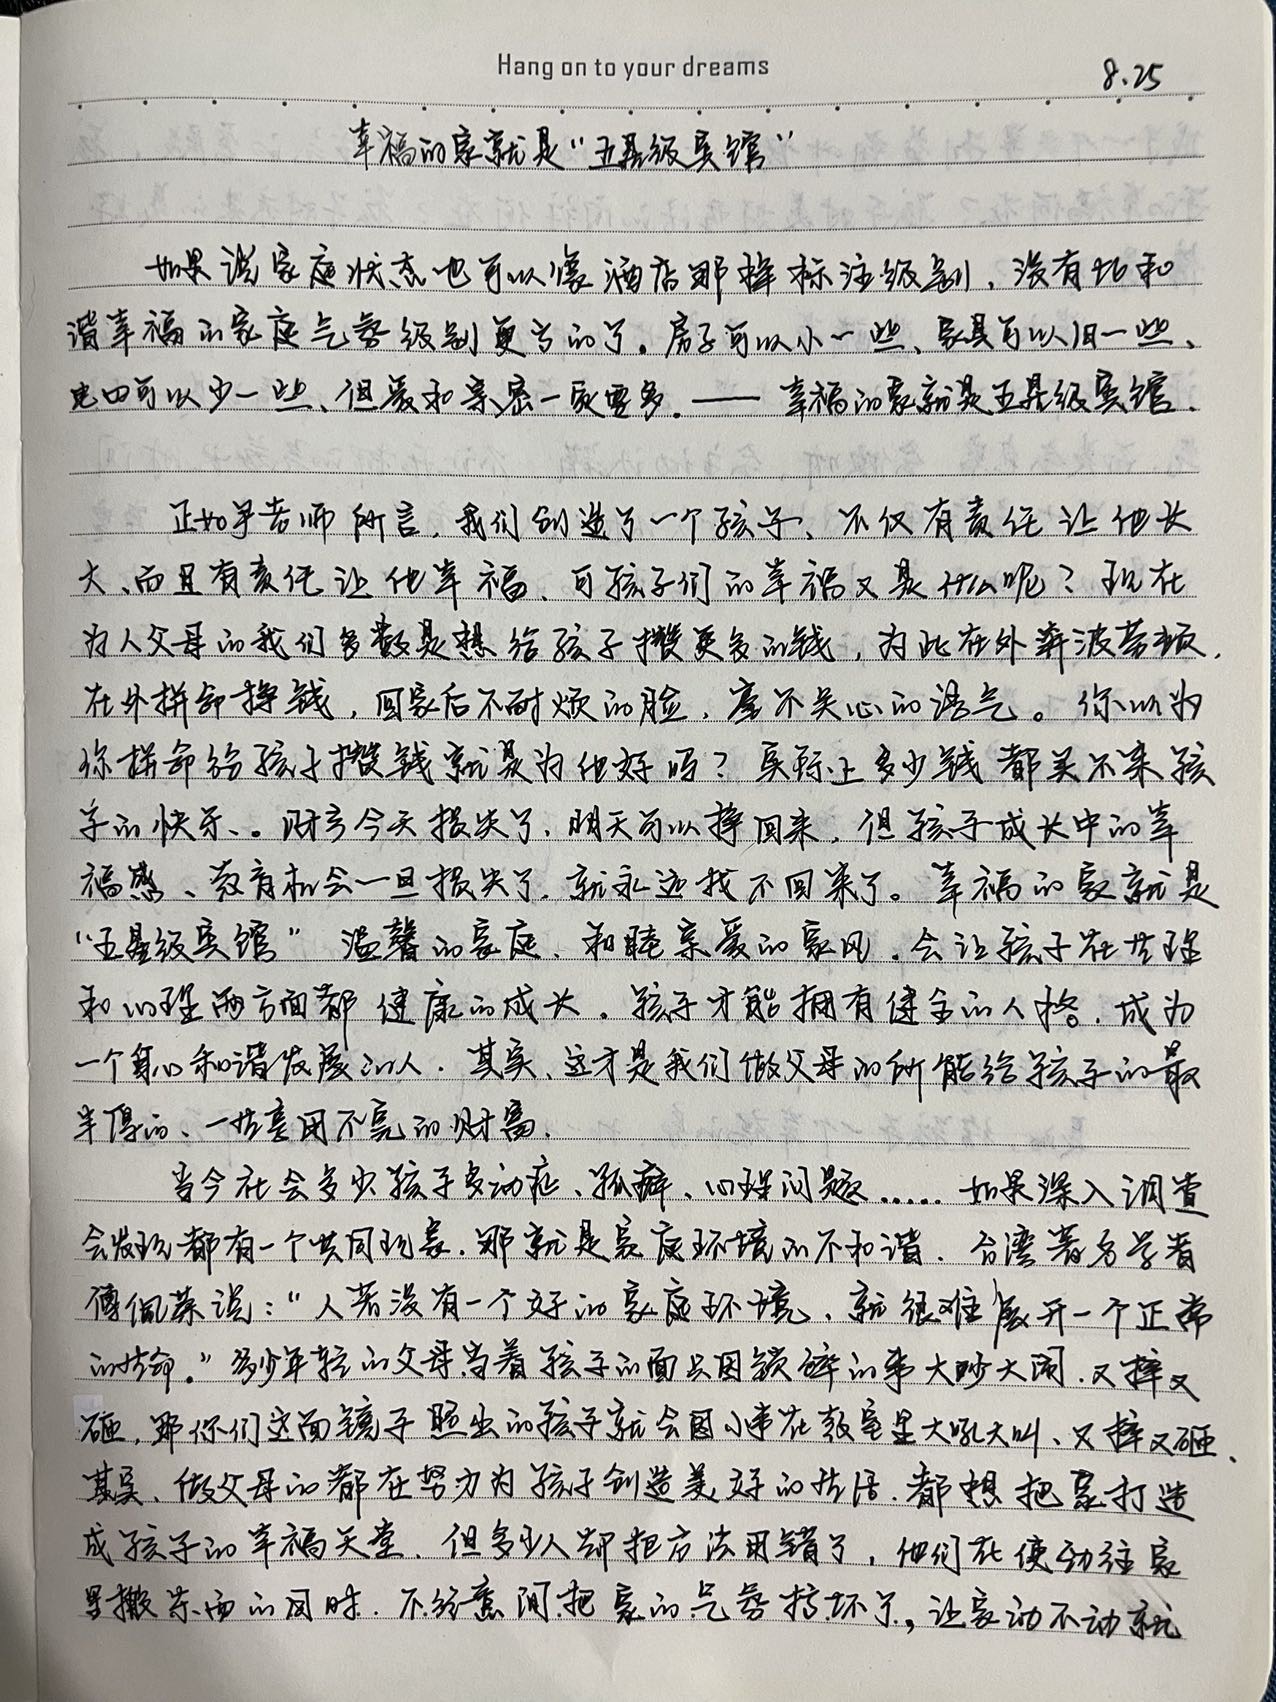 Hang on to your dreams
8.25
幸福的家就是“五星级宾馆”
如果说家庭状态也可以像酒店那样标注级别，没有比和
谐幸福的家庭气氛级别更高的了。房子可以小一些、家具可以旧一些、
电四可以少一些、但爱和亲密一定要多。——幸福的家就是五星级宾馆。
正如早老师所言，我们创造了一个孩子、不仅有责任让他长
大、而且有责任让他幸福、可孩子们的幸福又是什么呢？现在
为人父母的我们多数是想给孩子攒更多的钱，为此在外奔波劳顿，
在外拼命挣钱，回家后不耐烦的脸，毫不关心的语气。你以为
你拼命给孩子攒钱就是为他好吗？实际上多少钱都买不来孩
子的快乐、。财产今天损失了、明天可以挣回来，但孩子成长中的幸
福感、教育机会一旦损失了，就永远找不回来了。幸福的家就是
“五星级宾馆” 温馨的家庭、和睦亲爱的家风，会让孩子在生理
和心理两方面都健康的成长。孩子才能拥有健全的人格，成为
一个身心和谐发展的人。其实、这才是我们做父母的所能给孩子的最
难得的、一生享用不完的财富、
当今社会多少孩子多动症、孤癖、心理问题……如果深入调查
会发现都有一个共同现象，那就是家庭环境的不和谐。台湾著名学者
傅佩荣说：“人若没有一个好的家庭环境、就很难展开一个正常
的生命。”多少年轻的父母当着孩子的面只因锁碎的事大吵大闹，又摔又
砸，那你们这面镜子照出的孩子就会因小事在教室里大吼大叫、又摔又砸、
其实、做父母的都在努力为孩子创造美好的生活，都想把家打造
成孩子的幸福天堂、但多少人却把方法用错了，他们在使劲往家
里搬东西的同时，不经意间把家的气氛搞坏了，让家动不动就